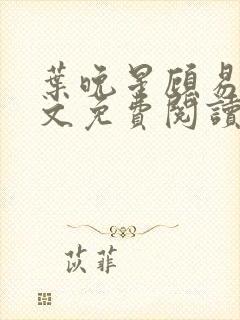 葉晚星顧易
文免費閱讀
苡菲